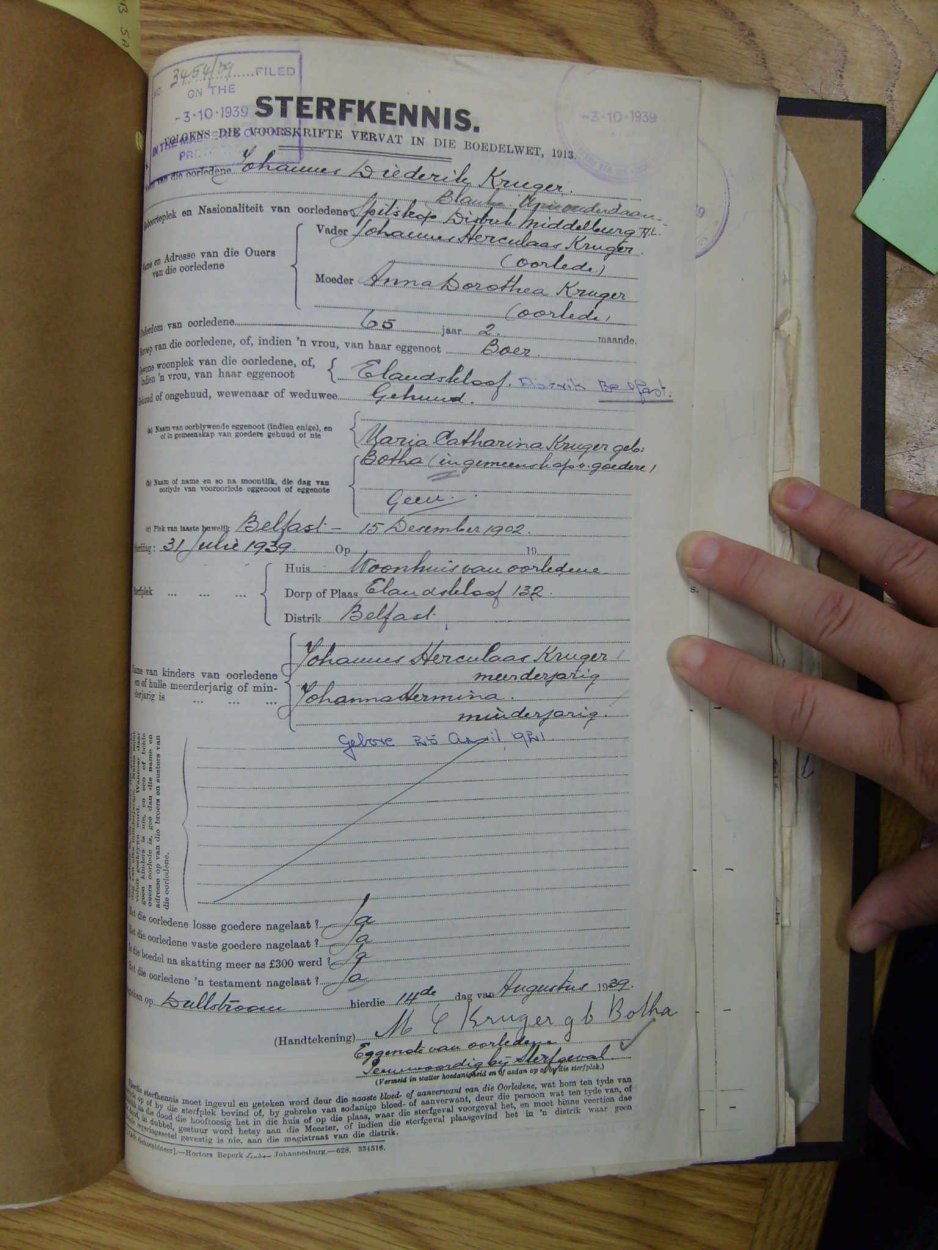 3454/39 FILED
ON THE
-3·10·1939
-3·10·1939
STERFKENNIS.
VOLGENS DIE VOORSKRIFTE VERVAT IN DIE BOEDELWET, 1913.
van die oorledene Johannes Diederik Kruger.
Blanke
Geboorteplek en Nasionaliteit van oorledene Spitskop Distrik Middelburg
Vader Johannes Herculaas Kruger
(oorlede)
Name en Adresse van die Ouers
van die oorledene
Moeder Anna Dorothea Kruger
(oorlede)
Ouderdom van oorledene 65 jaar 2 maande.
Beroep van die oorledene, of, indien 'n vrou, van haar eggenoot Boer.
Gewone woonplek van die oorledene, of,
indien 'n vrou, van haar eggenoot Elandskloof. Distrik Belfast.
Gehuud of ongehuud, wewenaar of weduwee Gehuud.
(a) Naam van oorblywende eggenoot (indien enige), en
of in gemeenskap van goedere gehuud of nie
Maria Catharina Kruger geb:
Botha (in gemeenskap v. goedere)
(b) Naam of name en so na moontlik, die dag van
oorlyde van vooroorlede eggenoot of eggenote
Geen.
(c) Plek van laaste huwelik Belfast – 15 Desember 1902.
31 Julie 1939. Op 19
Huis Woonhuis van oorledene
Sterfplek ... ... ... Dorp of Plaas Elandskloof 132
Distrik Belfast.
Johannes Herculaas Kruger
Name van kinders van oorledene meerderjarig
en of hulle meerderjarig of min-
derjarig is ... ... ... Johanna Hermina.
minderjarig.
Gebore 25 April 1921.
adresse op van die broers en susters van
die oorledene.
Het die oorledene losse goedere nagelaat? Ja
Het die oorledene vaste goedere nagelaat? Ja
Is die boedel na skatting meer as £300 werd? Ja
Het die oorledene 'n testament nagelaat? Ja
Dullstroom hierdie 14de dag van Augustus 1939.
(Handtekening) M C Kruger gb Botha
Eggenote van oorledene
Teenwoordig by sterfgeval
(Vermeld in watter hoedanigheid en of aldan op of by die sterfplek.)
Hierdie sterfkennis moet ingevul en geteken word deur die naaste bloed- of aanverwant van die Oorledene, wat hom ten tyde van
die dood op of by die sterfplek bevind of, by gebreke van sodanige bloed- of aanverwant, deur die persoon wat ten tyde van, of
na die dood die hooftoesig het in die huis of op die plaas, waar die sterfgeval voorgeval het, en moet binne veertien dae
in dubbel, gestuur word hetsy aan die Meester, of indien die sterfgeval plaasgevind het in 'n distrik waar geen
gevestig is nie, aan die magistraat van die distrik.
Hortors Beperk Johannesburg.—628. 334516.